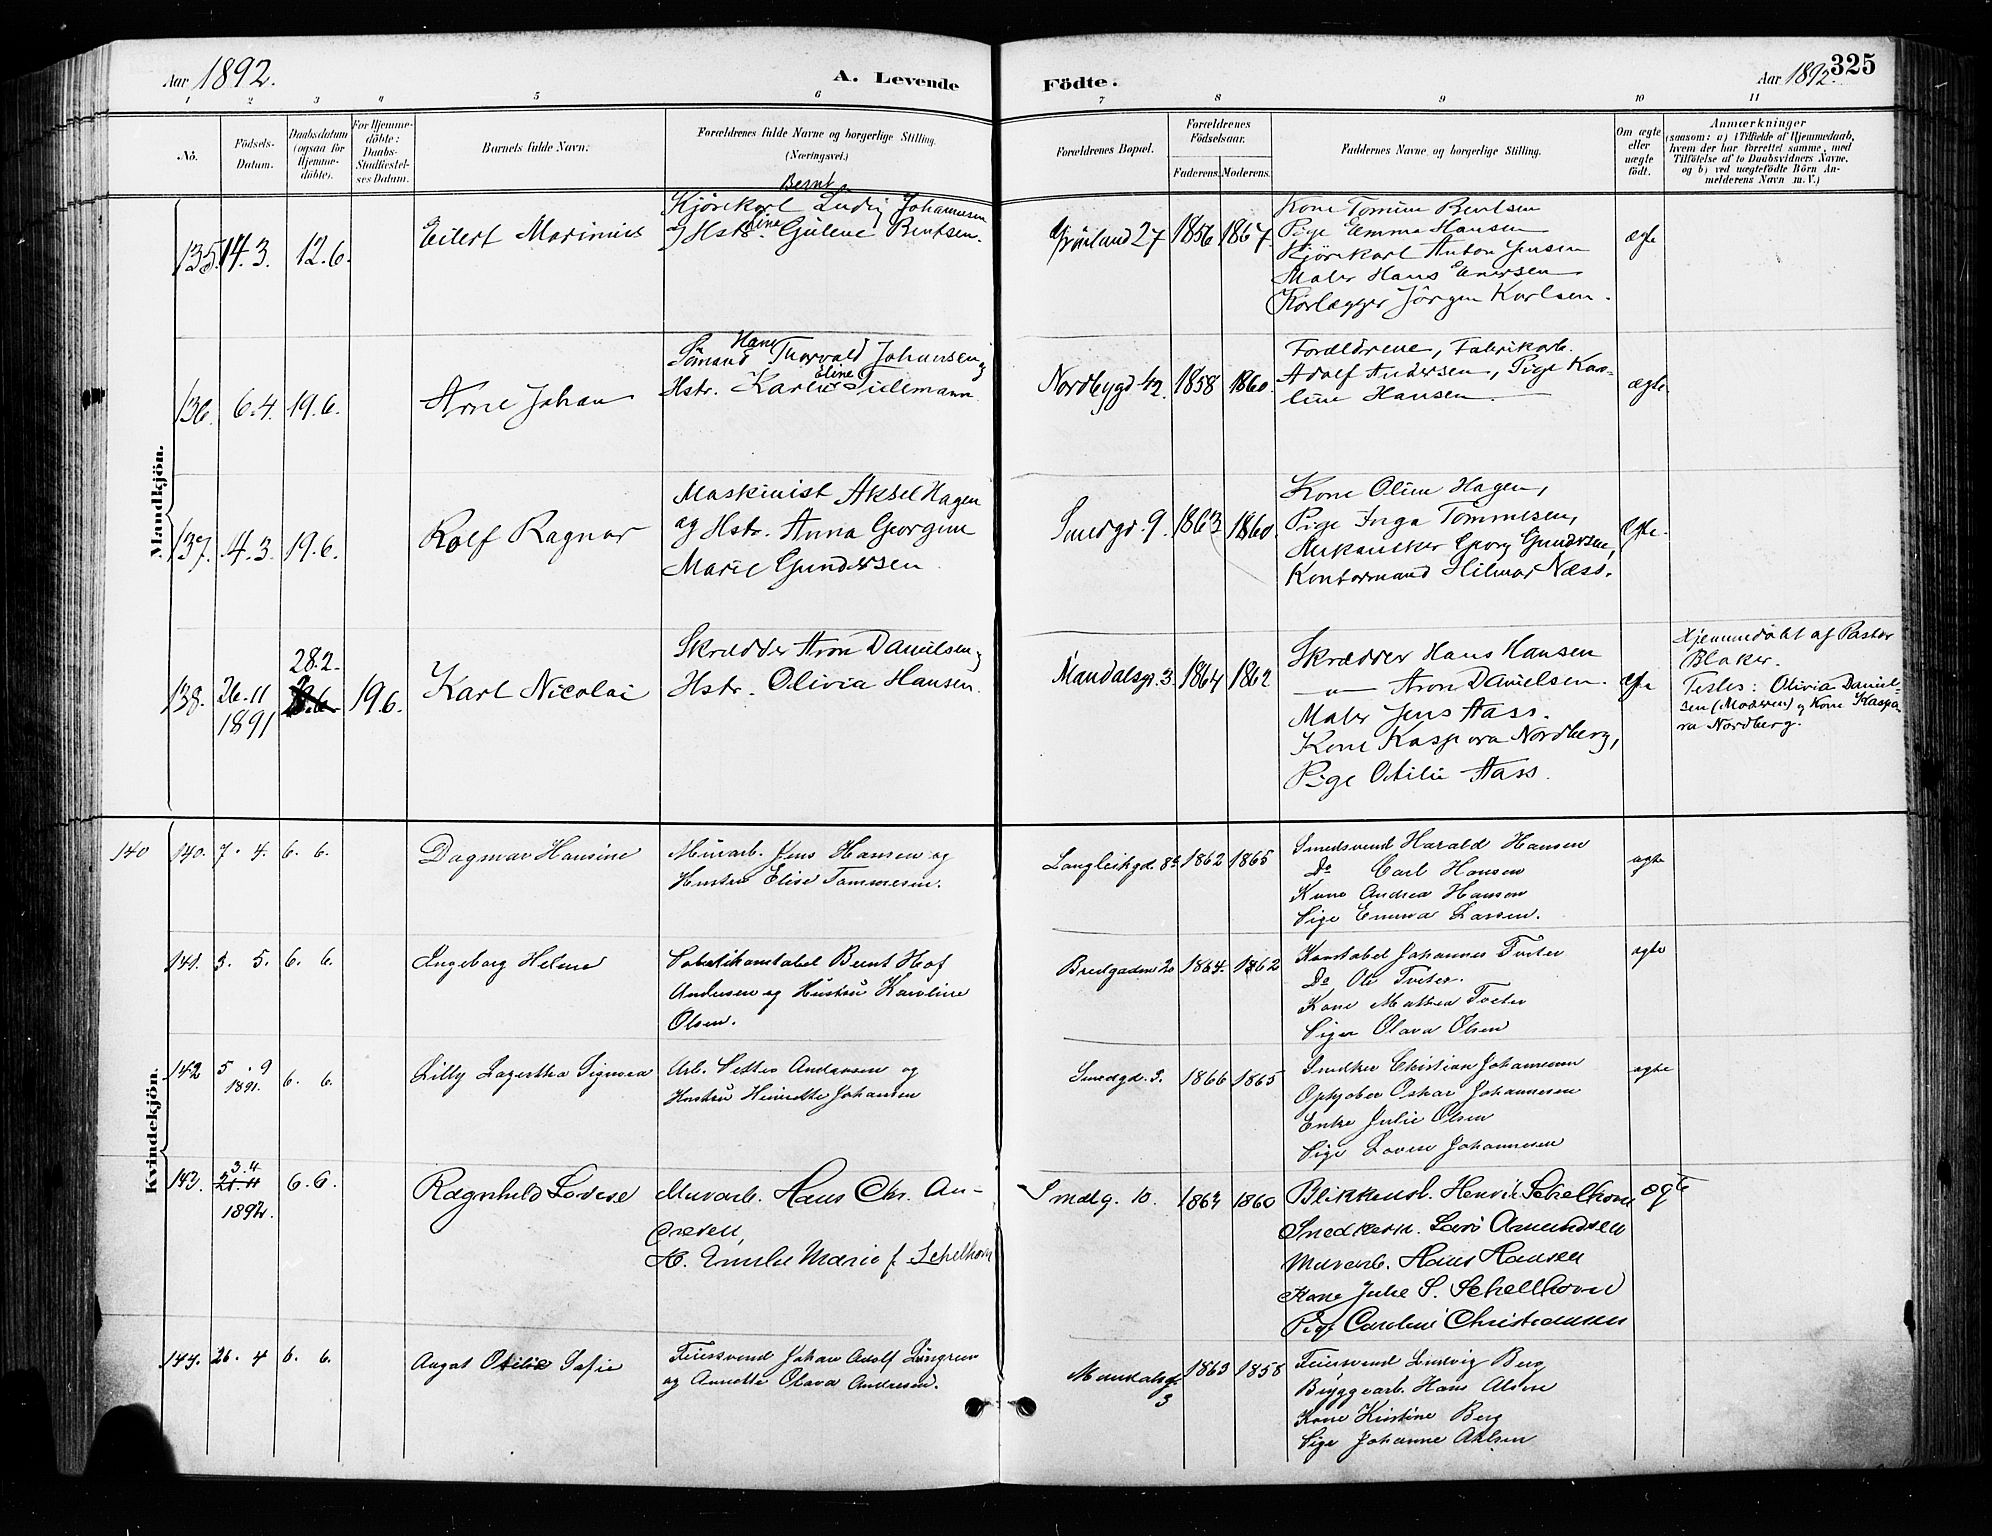 Aar 1892.
A. Levende
Födte.
Aar 1892.
325
1 2 3 4 5 6 7 8 9 10 11
Nô.
Födsels-Datum.
Daabsdatum (ogsaa for Hjemme-döbte).
For Hjemme-döbte: Daabs-Stadfæstel-ses Datum.
Barnets fulde Navn.
Forældrenes fulde Navne og borgerlige Stilling. (Næringsvei.)
Forældrenes Bopæl.
Forældrenes Födselsaar.
Faderens. Moderens.
Faddernes Navne og borgerlige Stilling.
Om ægte eller uægte födt.
Anmærkninger
(saasom: a) i Tilfælde af Hjemmedaab, hvem der har forrettet samme, med Tilföielse af to Daabsvidners Navne, og b) ved uægtefödte Börn Anmelderens Navn m. V.)
Mandkjön.
135. 14.3. 12.6. Eilert Marinius
Bernt
Kjörekarl Ludvig Johannesen
Line
og Hstr. Gulene Bentsen.
Grönland 27 1856 1867
Kone Tomine Bentsen
Pige Emma Hansen
Kjörekarl Anton Jensen
Maler Hans Einersen
Rörlægger Jörgen Karlsen.
ægte
136. 6.4. 19.6. Arne Johan
Hans
Sömand Thorvald Johansen og
Eline
Hstr. Karen Tidemann
Nordbygd 42. 1858 1860.
Forældrene, Fabrikarb.
Adolf Andersen, Pige Kao-
line Hansen.
ægte.
137. 4.3. 19.6. Rolf Ragnar
Maskinist Aksel Hagen
og Hstr. Anna Georgine
Marie Gundersen
Smedgd. 9. 1863 1860
Kone Oline Hagen,
Pige Inga Tommesen,
Georg Gundersen,
Kontormand Hilmar Næss.
ægte.
138. 26.11 1891
28.2.
19.6. Karl Nicolai
Skrædder Aron Danielsen og
Hstr. Olivia Hansen.
Mandalsgt. 3 1864 1862
Skrædder Hans Hansen
—"— Aron Danielsen.
Maler Jens Aass.
Kone Kaspara Nordberg,
Pige Otilie Aass.
ægte
Hjemmedöbt af Pastor
Blaker.
Testes: Olivia Daniel-
sen (Moderen) og Kone Kaspa-
ra Nordberg.
Kvindekjön.
140 140. 7.4. 6.6. Dagmar Hansine
Murarb. Jens Hansen og
Hustru Elise Tommesen.
Langleikgd. 1862 1865
Smedsvend Harald Hansen
Do Carl Hansen
Kone Andrea Hansen
Pige Emma Larsen.
ægte
141. 3. 5. 6. 6. Ingeborg Helene
Politikonstabel Bernt Hof
Andersen og Hustru Karoline
Olsen.
Bredgaden 20 1864. 1862
Konstabel Johannes Tveter
Do Ole Tveter.
Kone Mathea Tveter
Pigen Olava Olsen
ægte
142 5.9 1891. 6. 6. Lilly Lagertha Signora
Arb. Petter Andersen og
Hustru Henriette Johansen
Smedgd. 3. 1866 1865
Snedker Christian Johannesen
Opkjöber Oskar Johannesen
Enke Julie Olsen
Pige Lovise Johannesen
ægte
143.
3.4
1892. 6.6. Ragnhild Lovise
Murarb. Hans Chr. An-
dresen,
H. Emilie Marie f. Schelhorn
Smedg. 10. 1863 1860
Blikkensl. Henrik Schelhorn
Snedkerm. Lars Amundsen
Murarb. Hans Hansen
Kone Julie S. Schellhorn
Pige Caroline Christensen
ægte
144. 26.4 6.6. Augot Otilie Sofie
Feiersvend Johan Adolf Lüngren
og Annette Olava Andersen.
Mandalsgt. 3 1863 1858
Feiersvend Ludvig Berg
Bryggearb. Hans Alsen
Kone Kristine Berg
Pige Johanne Ahlsen